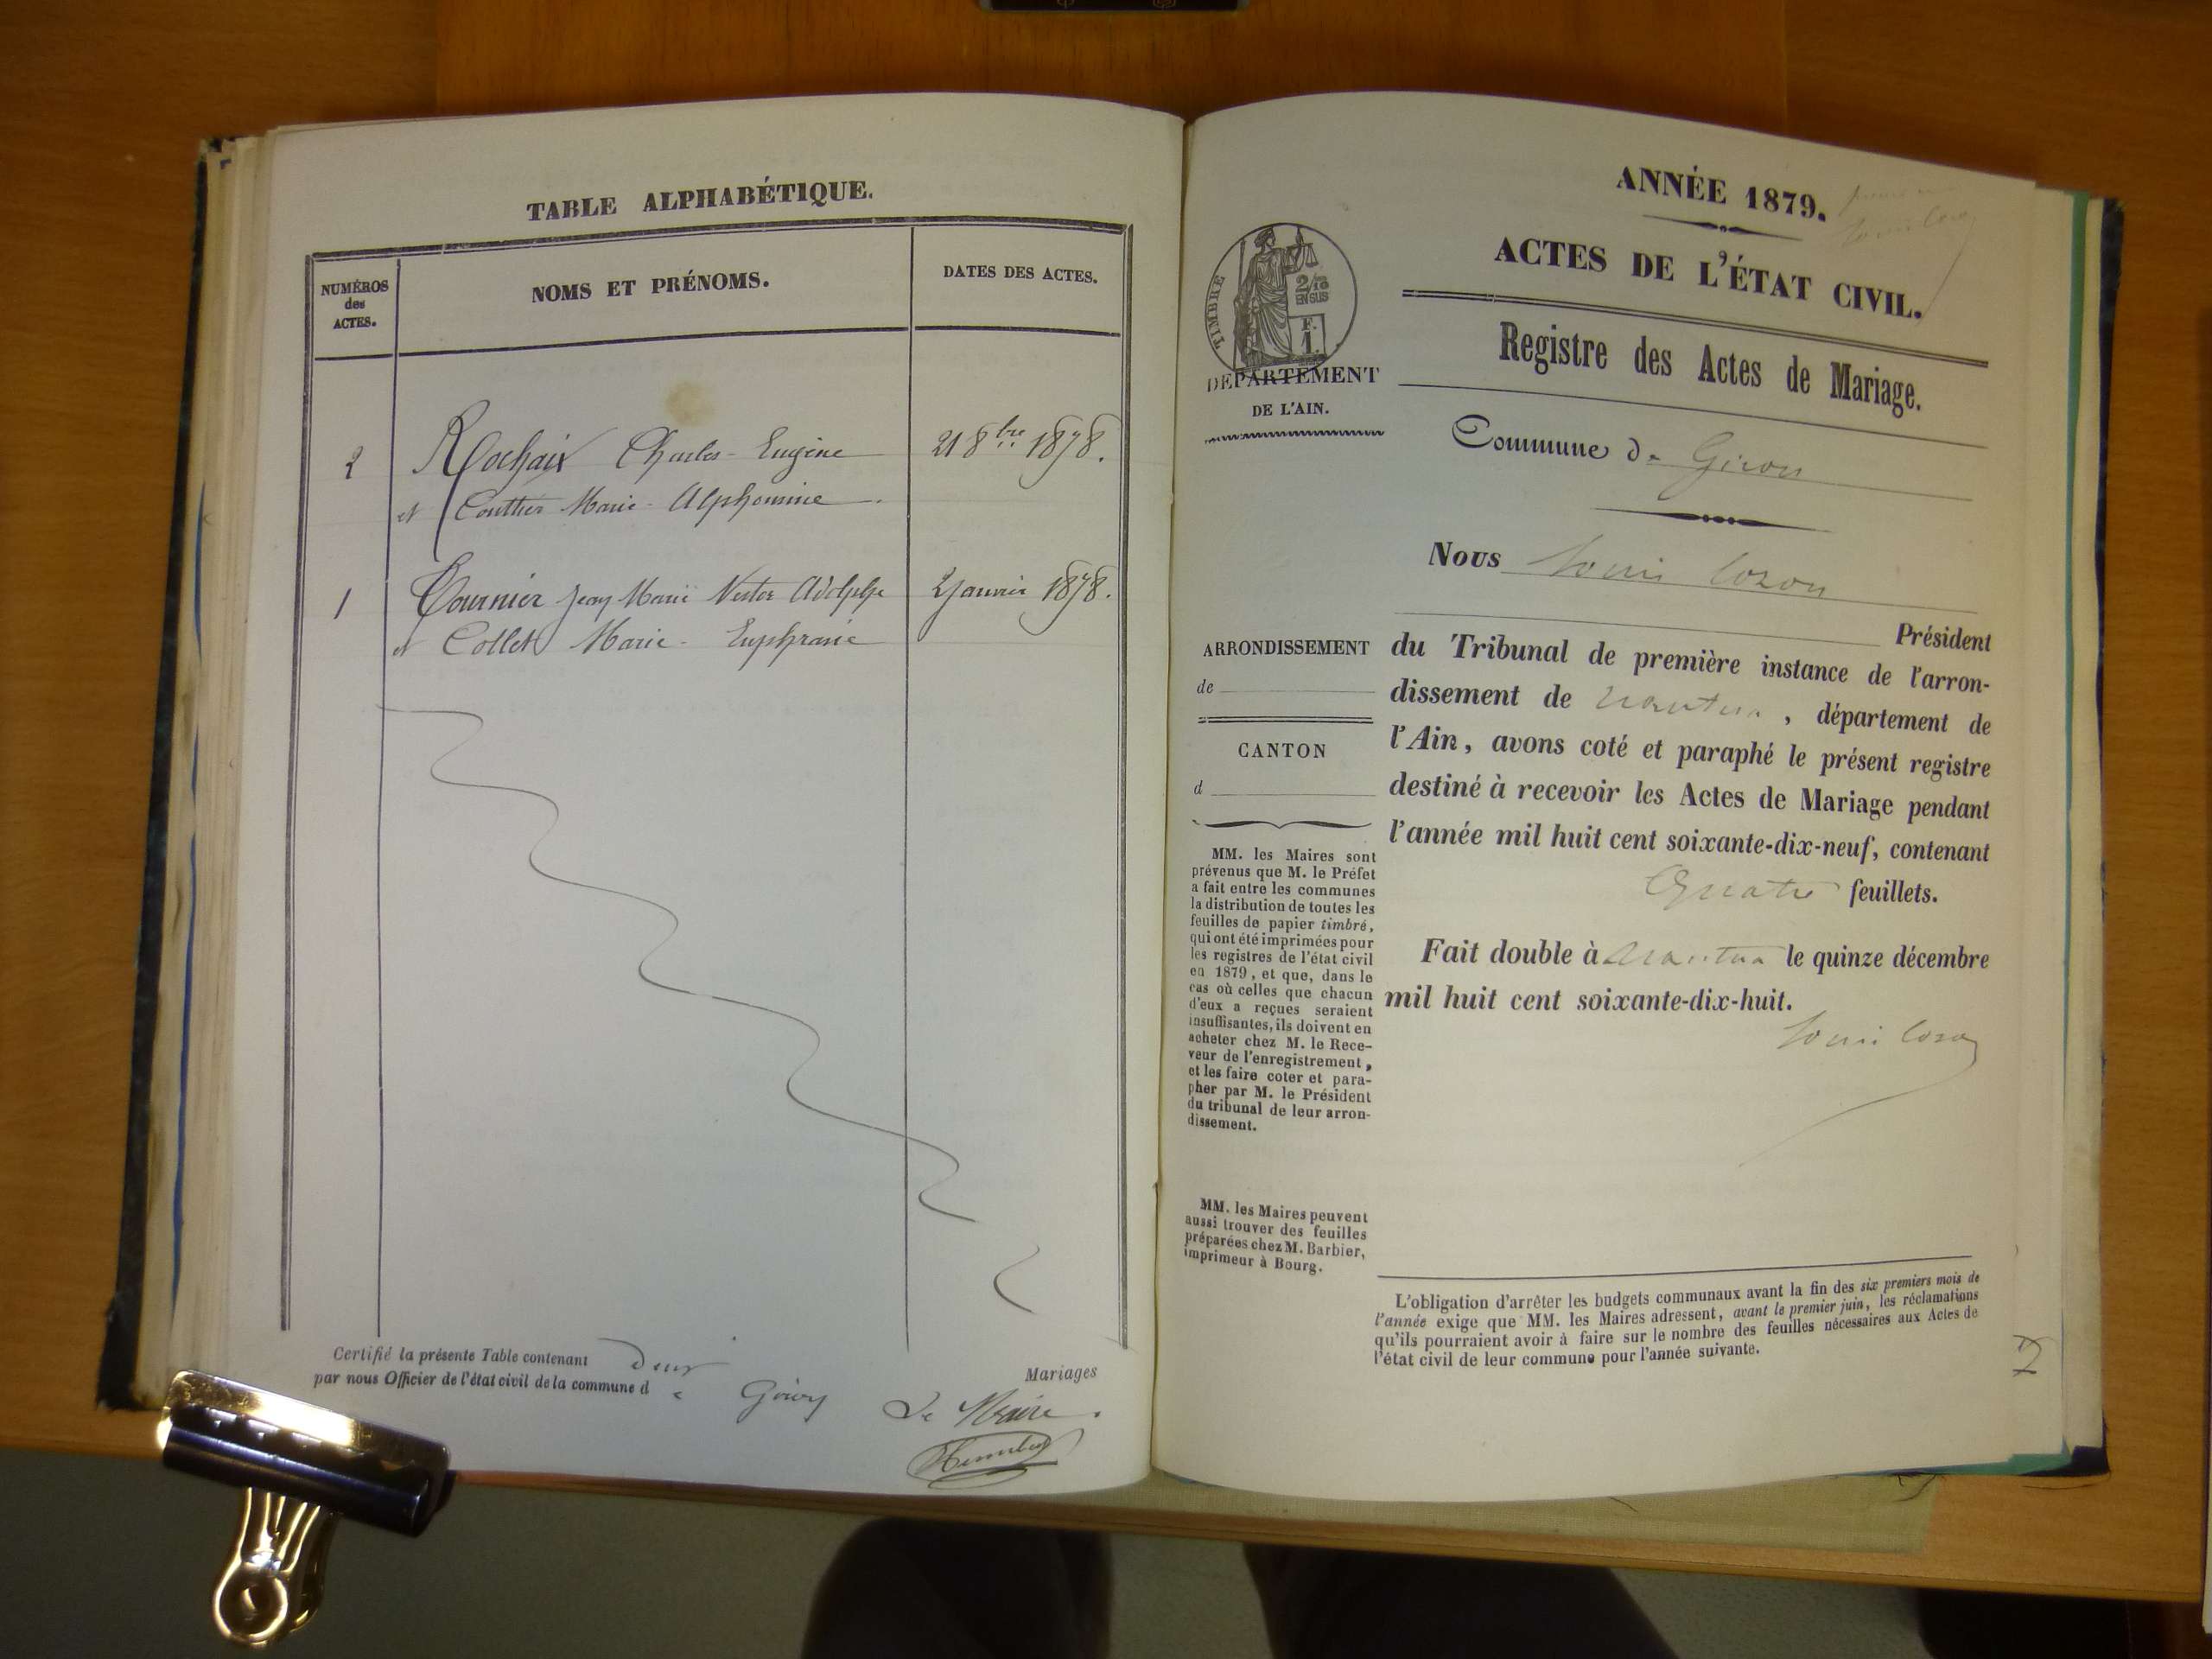 TABLE ALPHABÉTIQUE.
NUMÉROS
des
ACTES.
NOMS ET PRÉNOMS.
DATES DES ACTES.
2 Rochaix Charles-Eugène 21 8bre 1878.
et Gauthier Marie-Alphonsine
1 Tournier Jean Marie Nestor Adolphe 2 janvier 1878.
et Collet Marie-Euphrasie
Certifié la présente Table contenant deux Mariages
par nous Officier de l'état civil de la commune de Giron
Le Maire.
ANNÉE 1879.
ACTES DE L'ÉTAT CIVIL.
TIMBRE
2/10
EN SUS
F.
1.
DÉPARTEMENT
DE L'AIN.
Registre des Actes de Mariage.
Commune de Giron
Nous Louis Cozon
Président
du Tribunal de première instance de l'arron-
dissement de Nantua, département de
l'Ain, avons coté et paraphé le présent registre
destiné à recevoir les Actes de Mariage pendant
l'année mil huit cent soixante-dix-neuf, contenant
Quatre feuillets.
Fait double à Nantua le quinze décembre
mil huit cent soixante-dix-huit.
Louis Cozon
ARRONDISSEMENT
de
CANTON
d
MM. les Maires sont
prévenus que M. le Préfet
a fait entre les communes
la distribution de toutes les
feuilles de papier timbré,
qui ont été imprimées pour
les registres de l'état civil
en 1879, et que, dans le
cas où celles que chacun
d'eux a reçues seraient
insuffisantes, ils doivent en
acheter chez M. le Rece-
veur de l'enregistrement,
et les faire coter et para-
pher par M. le Président
du tribunal de leur arron-
dissement.
MM. les Maires peuvent
aussi trouver des feuilles
préparées chez M. Barbier,
imprimeur à Bourg.
L'obligation d'arrêter les budgets communaux avant la fin des six premiers mois de
l'année exige que MM. les Maires adressent, avant le premier juin, les réclamations
qu'ils pourraient avoir à faire sur le nombre des feuilles nécessaires aux Actes de
l'état civil de leur commune pour l'année suivante.